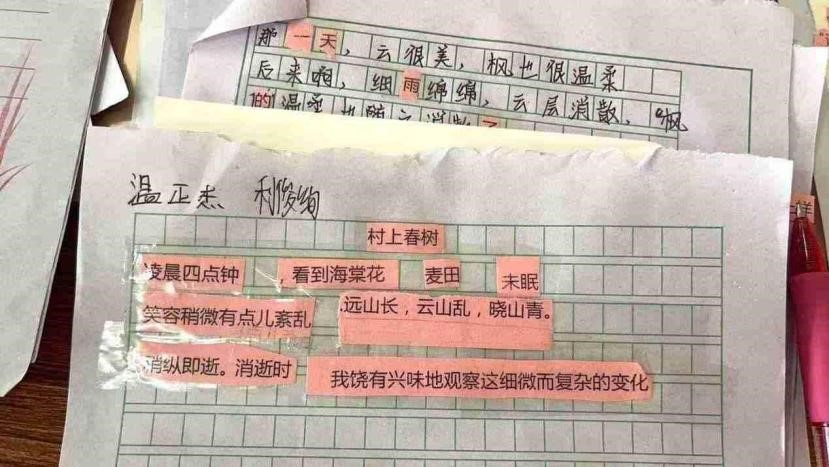 那一天，云很美，枫也很温柔
后来啊，细雨绵绵，云层消散，“枫
的温柔也随之消散了
温正杰 利俊绚
村上春树
凌晨四点钟，看到海棠花 麦田 未眠
笑容稍微有点儿紊乱 远山长，云山乱，晓山青。
消纵即逝。消逝时 我饶有兴味地观察这细微而复杂的变化
样